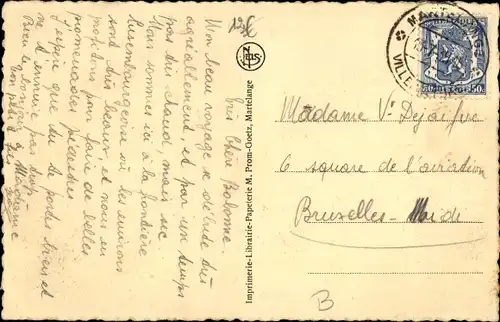 12,-€
Mon beau voyage se débute très
agréablement et par un temps
pas trop chaud, mais sec
Nous sommes ici à la frontière
luxembourgeoise où les environs
sont très beaux, et nous en
profitons pour faire de belles
promenades pédestres
J'espère que tu te portes bien et
ne t'ennuie pas trop
Bien le bonjour à Madame
Imprimerie-Librairie-Papeterie M. Prom-Goetz, Martelange
MARTELANGE
VILLE
50
50
Madame Ve Dejaiffue
6 square de l'aviation
Bruxelles-Midi
B